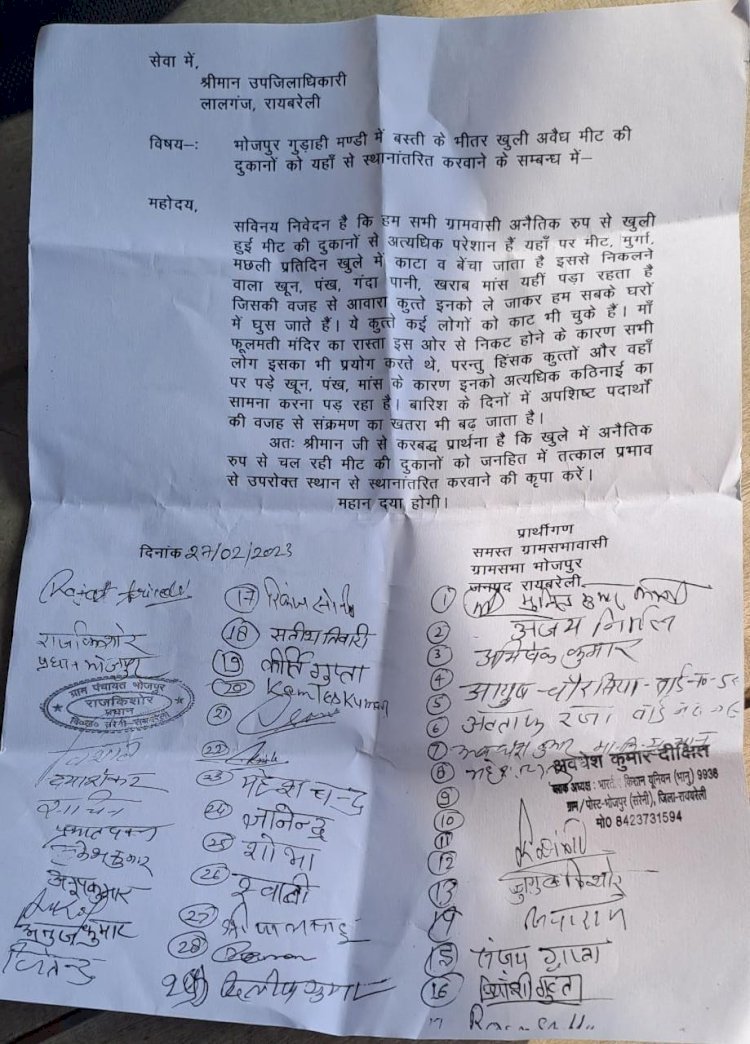 सेवा में,
श्रीमान उपजिलाधिकारी
लालगंज, रायबरेली
विषय–: भोजपुर गुड़ाही मण्डी में बस्ती के भीतर खुली अवैध मीट की
दुकानों को यहाँ से स्थानांतरित करवाने के सम्बन्ध में–
महोदय,
सविनय निवेदन है कि हम सभी ग्रामवासी अनैतिक रुप से खुली
हुई मीट की दुकानों से अत्यधिक परेशान हैं यहाँ पर मीट, मुर्गा,
मछली प्रतिदिन खुले में काटा व बेंचा जाता है इससे निकलने
वाला खून, पंख, गंदा पानी, खराब मांस यहीं पड़ा रहता है
जिसकी वजह से आवारा कुत्ते इनको ले जाकर हम सबके घरों
में घुस जाते हैं। ये कुत्ते कई लोगों को काट भी चुके हैं। माँ
फूलमती मंदिर का रास्ता इस ओर से निकट होने के कारण सभी
लोग इसका भी प्रयोग करते थे, परन्तु हिंसक कुत्तों और वहाँ
पर पड़े खून, पंख, मांस के कारण इनको अत्यधिक कठिनाई का
सामना करना पड़ रहा है। बारिश के दिनों में अपशिष्ट पदार्थो
की वजह से संक्रमण का खतरा भी बढ़ जाता है।
अतः श्रीमान जी से करबद्ध प्रार्थना है कि खुले में अनैतिक
रुप से चल रही मीट की दुकानों को जनहित में तत्काल प्रभाव
से उपरोक्त स्थान से स्थानांतरित करवाने की कृपा करें।
महान दया होगी।
दिनांक 27/02/2023
प्रार्थीगण
समस्त ग्रामसभावासी
ग्रामसभा भोजपुर
जनपद रायबरेली
राजकिशोर
प्रधान भोजपुर
ग्राम पंचायत भोजपुर
राजकिशोर
प्रधान
सचिन
अनूप कुमार
अनुज कुमार
17
18 सतीश तिवारी
19 कीर्ति गुप्ता
20
21
22
23 महेश चन्द्र
24 ज्ञानेन्द्र
25 शोभा
26 स्वाती
27
28
29 दिलीप कुमार
1
2 अजय
3 अभिषेक कुमार
4
5 आयुष चौरसिया
6 रजा
7
8
अवधेश कुमार दीक्षित
ब्लाक अध्यक्ष : भारतीय किसान यूनियन (भानु) 9936
ग्राम/पोस्ट-भोजपुर (सरेनी), जिला-रायबरेली
मो0 8423731594
9
10
11
12
13 जुगुल किशोर
14
15 संजय गुप्ता
16 गुप्ता